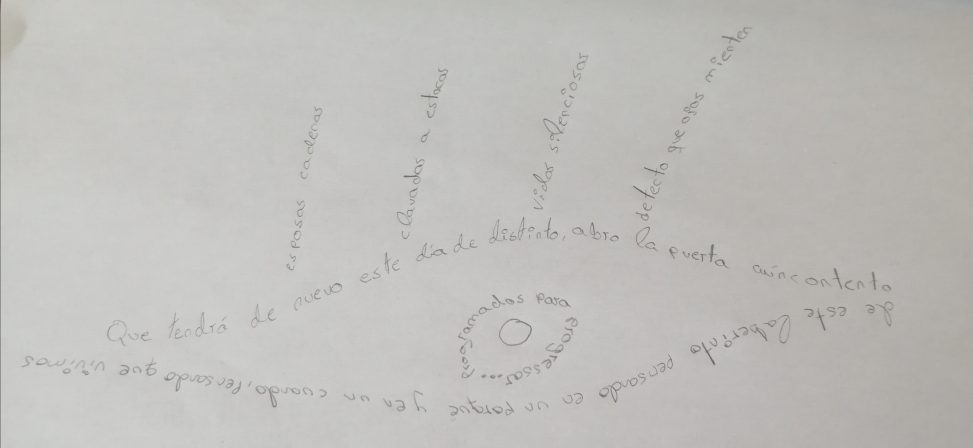 esposas cadenas
clavadas a estacas
vidas silenciosas
detecto que ojos mienten
Que tendrá de nuevo este día de distinto, abro la puerta aún contento
de este laberinto pensando en un porque y en un cuando, pensando que vivimos
programados para progressar....